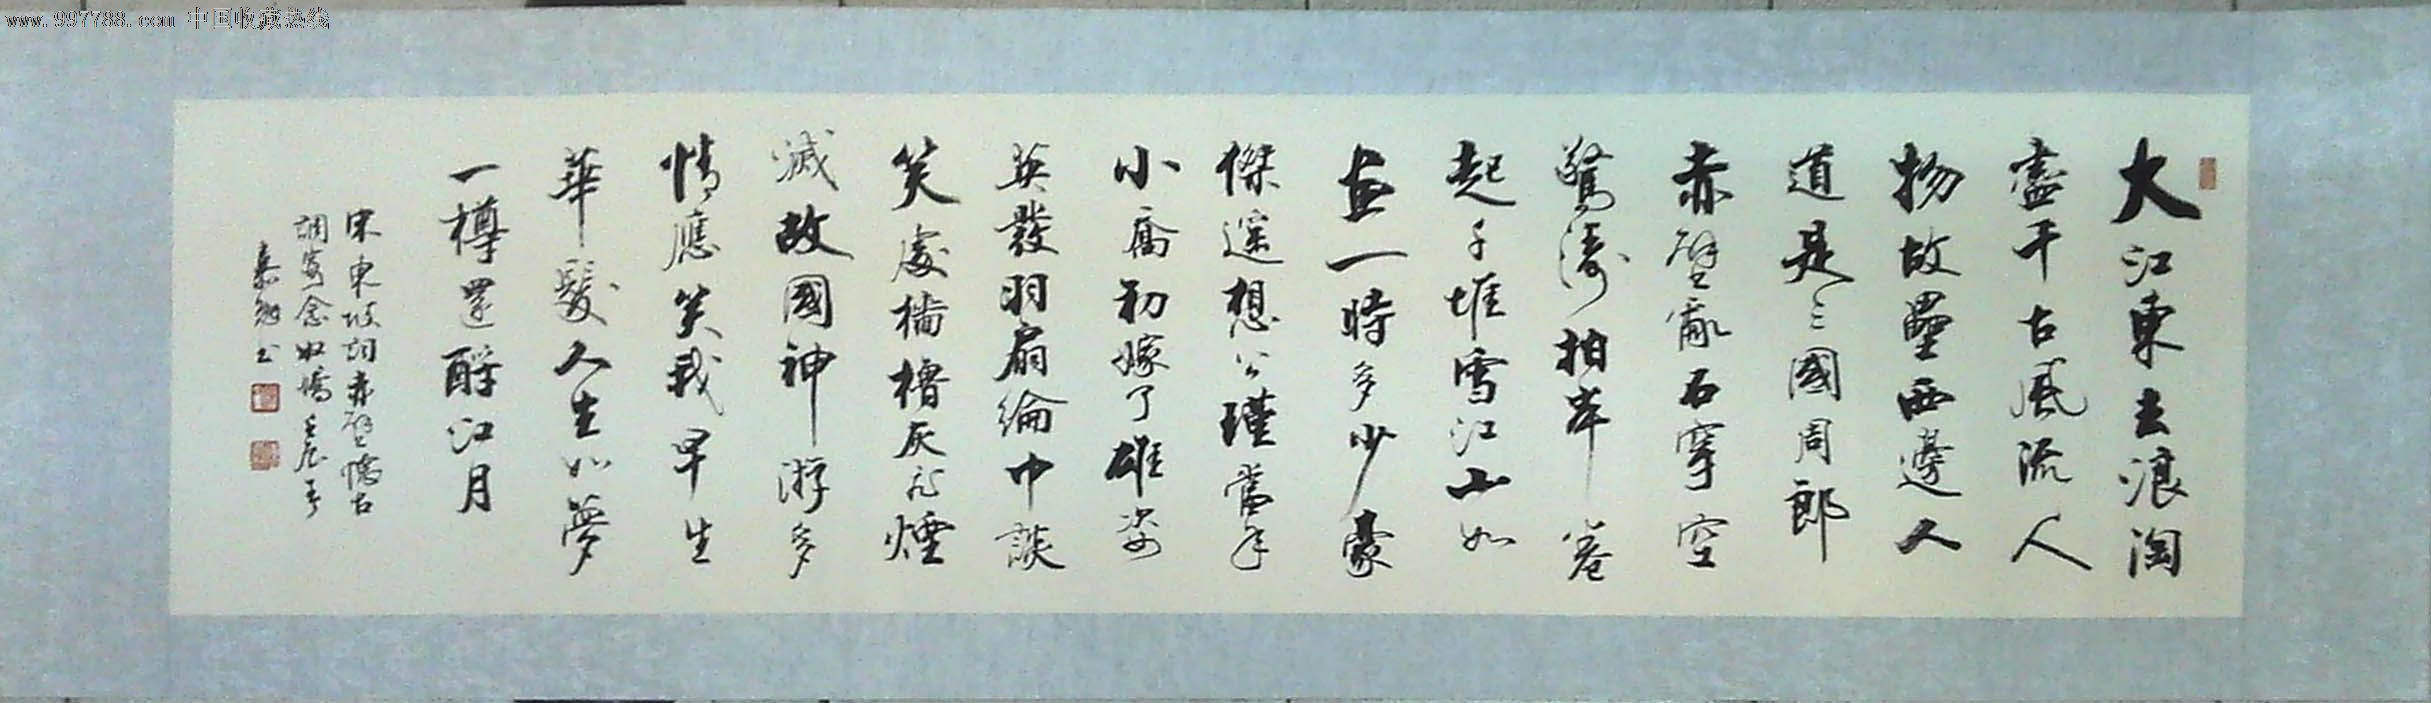 www.997788.com 中国收藏热线
大江東去浪淘
盡千古風流人
物故壘西邊人
道是三國周郎
赤壁亂石穿空
驚濤拍岸卷
起千堆雪江山如
畫一時多少豪
傑遥想公瑾當年
小喬初嫁了雄姿
英發羽扇綸巾談
笑處檣櫓灰飛煙
滅故國神游多
情應笑我早生
華髮人生如夢
一樽還酹江月
宋東坡詞赤壁懷古
調寄念奴嬌壬辰春
書